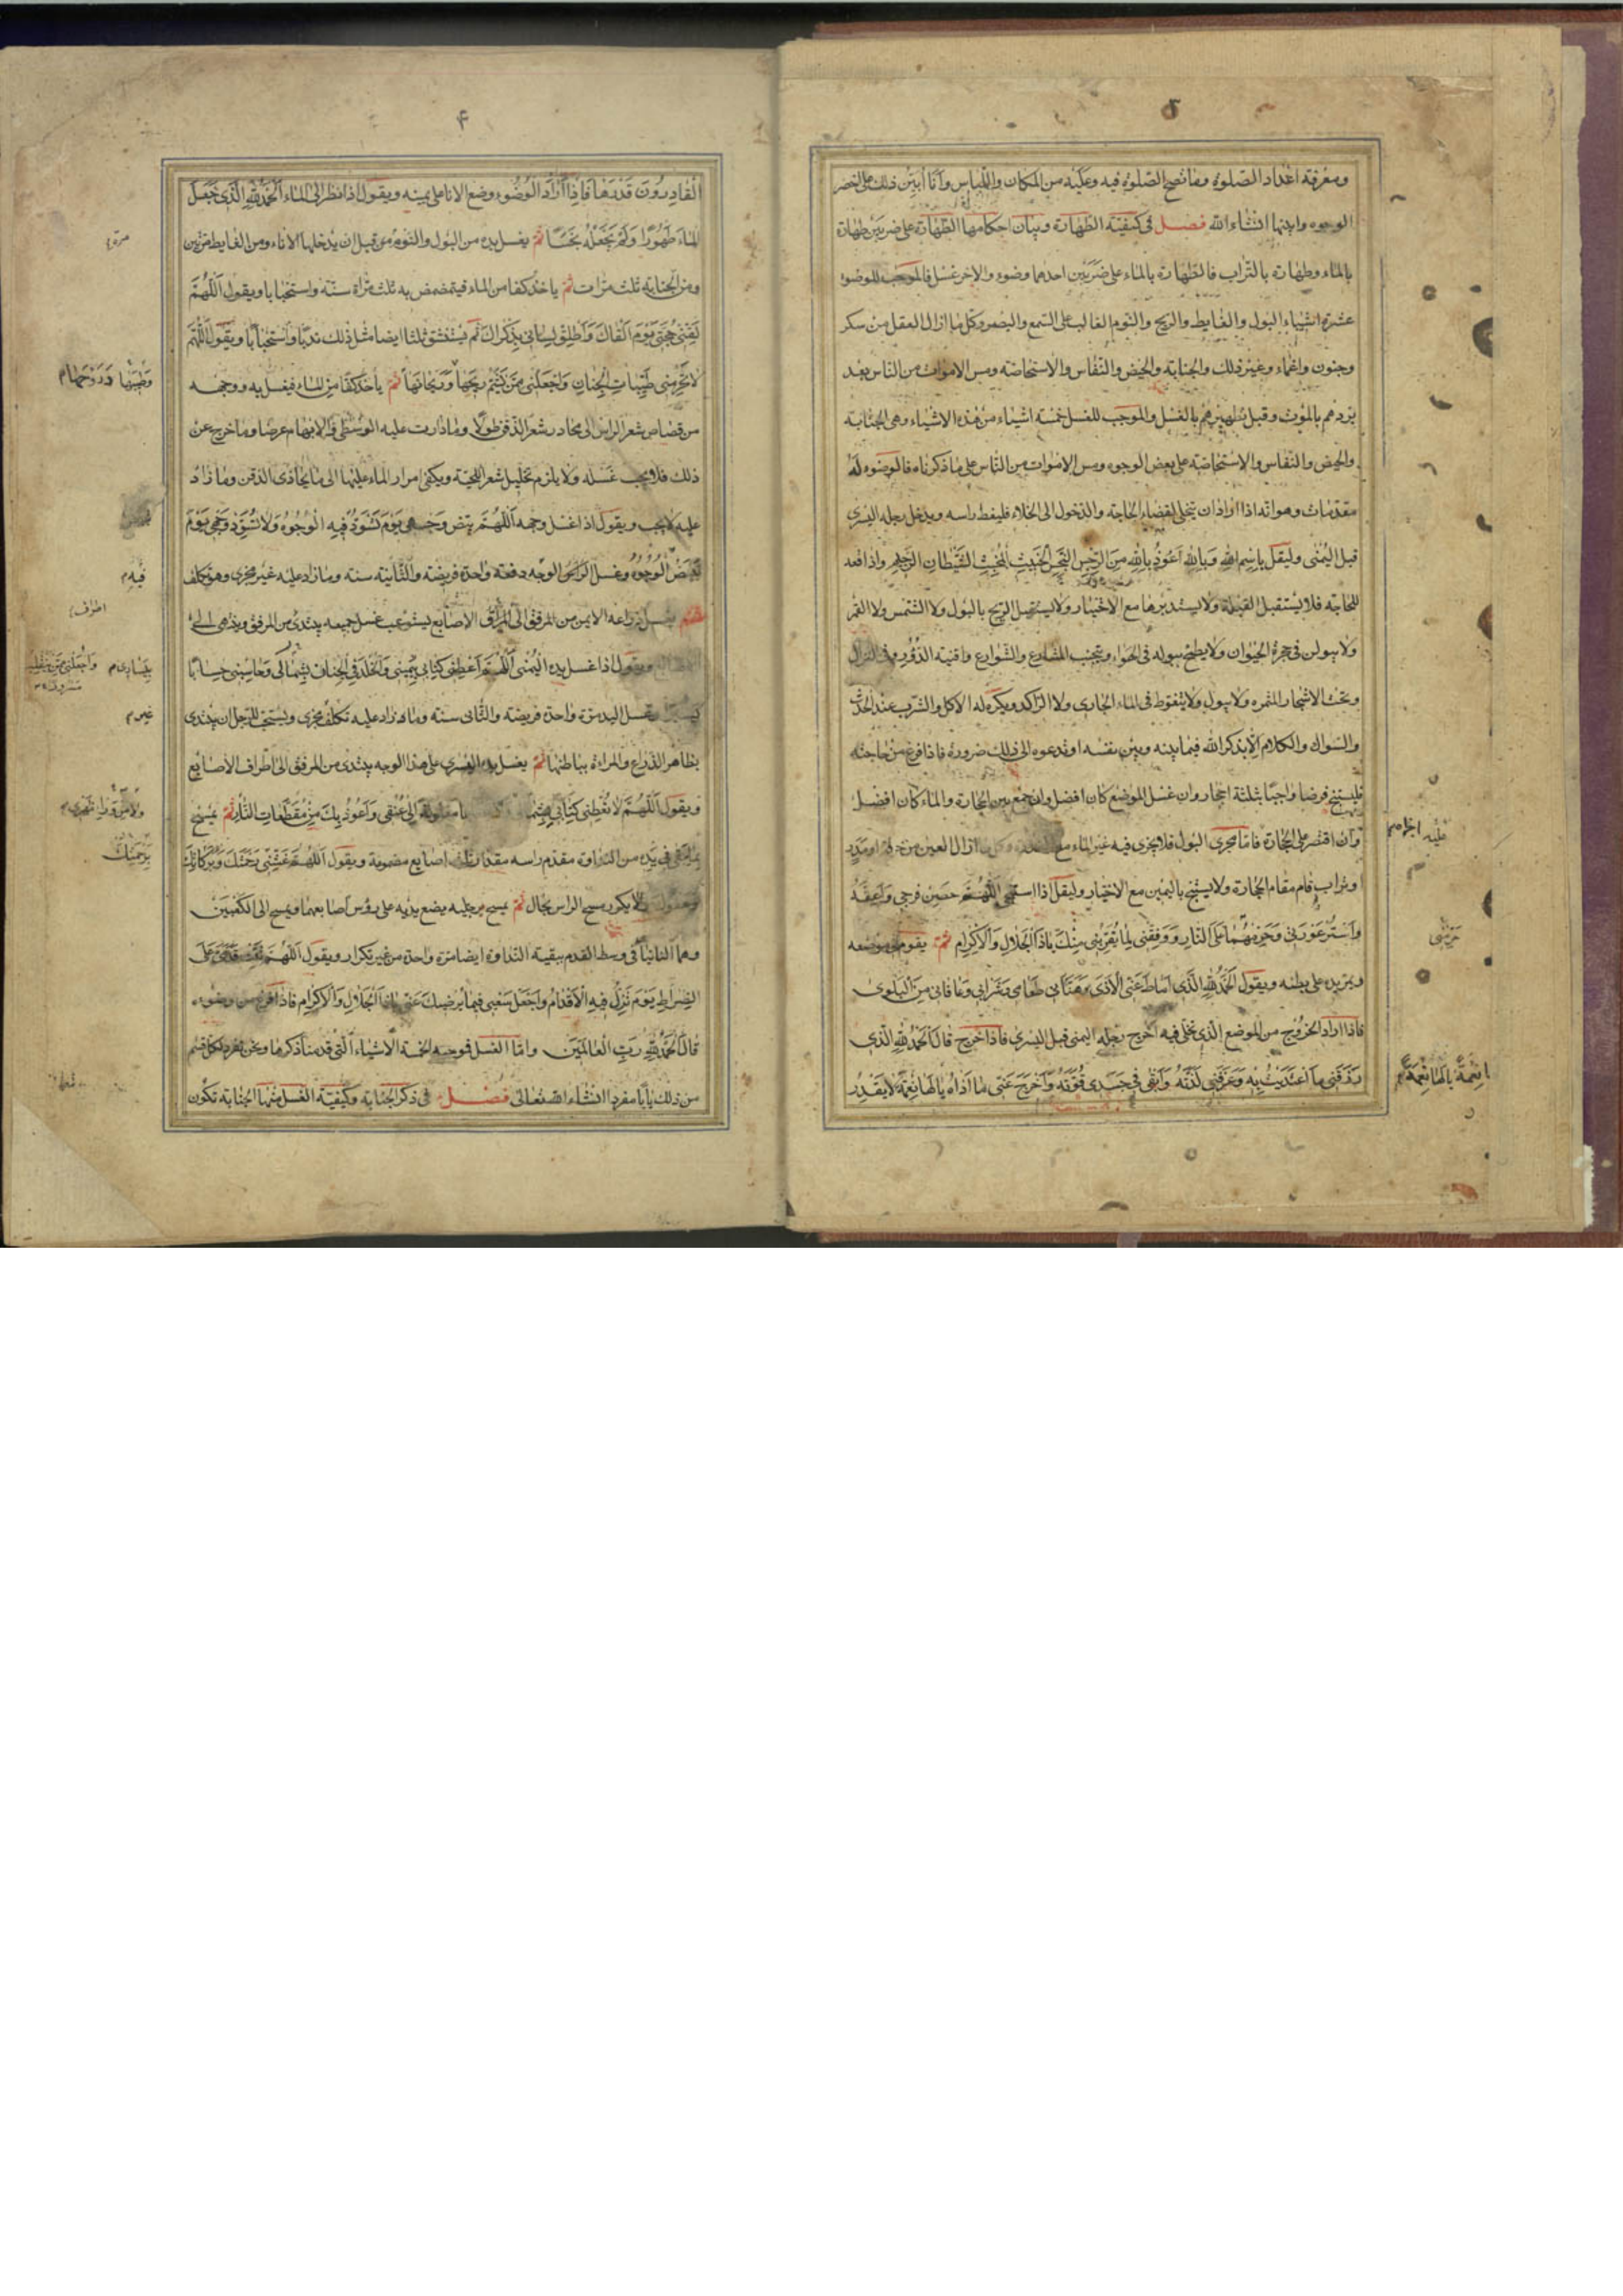 ٥
ومعرفة اعداد الصلوة وما تصح الصلوة فيه وعليه من المكان واللباس وانا ابين ذلك على اخصر
الوجوه وابينها انشاء الله فصل فى كيفية الطهارة وبيان احكامها الطهارة على ضربين طهارة
بالماء وطهارة بالتراب فالطهارة بالماء على ضربين احدهما وضوء والاخر غسل فالموجب للوضوء
عشرة اشياء البول والغايط والريح والنوم الغالب على السمع والبصر وكل ما ازال العقل من سكر
وجنون واغماء وغير ذلك والجنابة والحيض والنفاس والاستحاضة ومس الاموات من الناس بعد
بردهم بالموت وقبل تطهيرهم بالغسل والموجب للغسل خمسة اشياء من هذه الاشياء وهى الجنابة
والحيض والنفاس والاستحاضة على بعض الوجوه ومس الاموات من الناس على ما ذكرناه فالوضوء له
مقدمات وهو انه اذا اراد ان يتخلى لقضاء الحاجة والدخول الى الخلاء فليغط راسه ويدخل رجله اليسرى
قبل اليمنى وليقل باسم الله وبالله اعوذ بالله من الرجس النجس الخبيث المخبث الشيطان الرجيم واذا قعد
للحاجة فلا يستقبل القبلة ولا يستدبرها مع الاختيار ولا يستقبل الريح بالبول ولا الشمس ولا القمر
ولا يبولن فى جحرة الحيوان ولا يطمح ببوله فى الهواء ويتجنب المشارع والشوارع وافنية الدور وفى النزال
وتحت الاشجار المثمره ولا يبول ولا يتغوط فى الماء الجارى ولا الراكد ويكره له الاكل والشرب عند الحدث
والسواك والكلام الا بذكر الله فيما بينه وبين نفسه او تدعوه الى ذلك ضرورة فاذا فرغ من حاجته
فليستنج فرضا واجبا بثلثة احجار وان غسل الموضع كان افضل وان جمع بين الحجارة والماء كان افضل
وان اقتصر على الحجارة فاما مجرى البول فلا يجزى فيه غير الماء مع ازال العين من خرقة او مدر
او تراب قام مقام الحجارة ولا يستنجى باليمين مع الاختيار وليقل اذا استنجى اللهم حصن فرجى واعفه
واستر عورتى وحرمهما على النار ووفقنى لما يقربنى منك يا ذا الجلال والاكرام ثم يقوم من موضعه
ويمر يده على بطنه ويقول الحمد لله الذى اماط عنى الاذى وهنانى طعامى وشرابى وعافانى من البلوى
فاذا اراد الخروج من الموضع الذى تخلى فيه اخرج رجله اليمنى قبل اليسرى فاذا خرج قال الحمد لله الذى
رزقنى ما اغتذيت به وعرفنى لذته وابقى فى جسدى قوته واخرج عنى ما اذاه يا لها نعمة لا يقدر
عليه
يا لها نعمة
۴
القادرون قدرها فاذا اراد الوضوء وضع الانا على يمينه ويقول اذا نظر الى الماء الحمد لله الذى جعل
الماء طهورا ولم يجعله نجسا ثم يغسل يده من البول والنوم من قبل ان يدخلها الاناء ومن الغايط مرتين
ومن الجنابة ثلث مرات ثم ياخذ كفا من الماء فيتمضمض به ثلث مراة سنة واستحبابا ويقول اللهم
لقنى حجتى يوم القاك واطلق لسانى بذكراك ثم يستنشق ثلثا ايضا مثل ذلك ندبا واستحبابا ويقول اللهم
لا تحرمنى طيبات الجنان واجعلنى ممن يشم ريحها وريحانها ثم ياخذ كفا من الماء فيغسل به ووجهه
من قصاص شعر الراس الى محادر شعر الذقن طولا وما دارت عليه الوسطى والابهام عرضا وما خرج عن
ذلك فلا يجب غسله ولا يلزم تخليل شعر اللحية ويكفى امرار الماء عليها الى ما يحاذى الذقن وما زاد
عليه لا يجب ويقول اذا غسل وجهه اللهم بيض وجهى يوم تسود فيه الوجوه ولا تسود وجهى يوم
تبيض الوجوه وغسل الوجه دفعة واحدة فريضة والثانية سنة وما زاد عليه غير مجزى وهو تكلف
ثم يغسل ذراعه الايمن من المرفق الى اطراف الاصابع يستوعب غسل جميعه يبتدى من المرفق وينتهى الى
ويقول اذا غسل يده اليمنى اللهم اعطنى كتابى بيمينى والخلد فى الجنان بشمالى وحاسبنى حسابا
يسيرا وغسل اليد مرة واحدة فريضة والثانى سنة وما زاد عليه تكلف مجزى ويستحب للرجل ان يبتدى
بظاهر الذراع والمراة بباطنها ثم يغسل يده اليسرى على هذا الوجه يبتدى من المرفق الى اطراف الاصابع
ويقول اللهم لا تعطنى كتابى بشمالى مغلولة الى عنقى واعوذ بك من مقطعات النار ثم يمسح
بما يبقى فى يده من النداوة مقدم راسه مقدار ثلث اصابع مضمومة ويقول اللهم غشنى رحمتك وبركاتك
وعفوك ولا يكرر مسح الراس بحال ثم يمسح برجليه يضع يديه على رؤس اصابعهما ويمسح الى الكعبين
وهما النابتان فى وسط القدم ببقية النداوة ايضا مرة واحدة من غير تكرار ويقول اللهم ثبت قدمى على
الصراط يوم تزل فيه الاقدام واجعل سعيى فيما يرضيك عنى يا ذا الجلال والاكرام فاذا فرغ من وضوءه
قال الحمد لله رب العالمين واما الغسل فموجبه الخمسة الاشياء التى قدمنا ذكرها ونحن نفرد لكل قسم
من ذلك بابا مفردا انشاء الله تعالى فصل فى ذكر الجنابة وكيفية الغسل منها الجنابة تكون
مرة
وطيبها
فيه
بيسارى
غير
ولا من وراء ظهرى
برحمتك